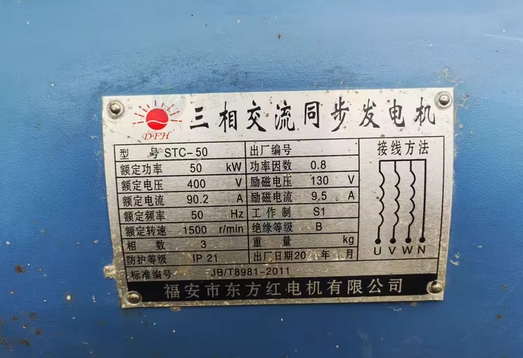 DFH
三相交流同步发电机
型 号 STC-50 出厂编号
额定功率 50 kW 功率因数 0.8
额定电压 400 V 励磁电压 130 V
额定电流 90.2 A 励磁电流 9.5 A
额定频率 50 Hz 工作制 S1
额定转速 1500 r/min 绝缘等级 B
相数 3 重量 kg
防护等级 IP 21 出厂日期20 年 月
标准编号 JB/T8981-2011
接线方法
U V W N
福安市东方红电机有限公司